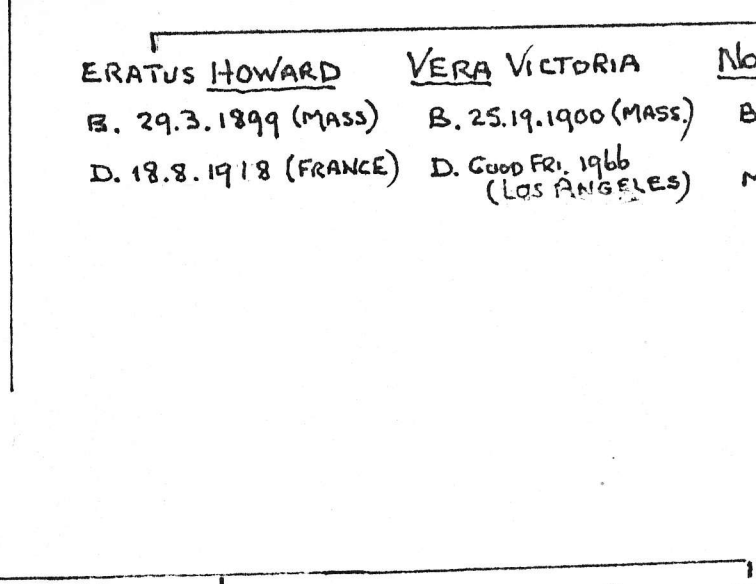 ERATUS HOWARD
B. 29.3.1899 (MASS)
D. 18.8.1918 (FRANCE)
VERA VICTORIA
B. 25.19.1900 (MASS.)
D. GOOD FRI. 1966
(LOS ANGELES)
No
B
M